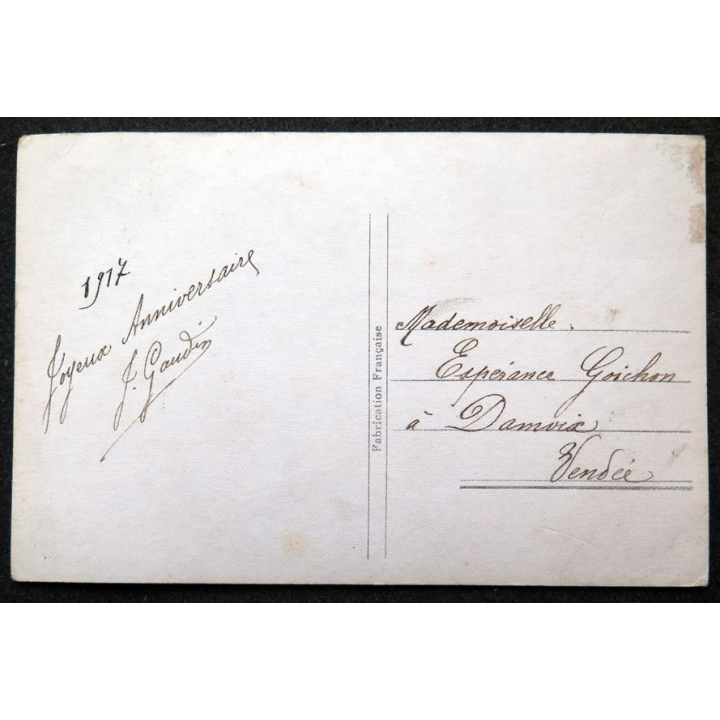 1917
Joyeux Anniversaire
J. Gaudin
Fabrication Française
Mademoiselle
Espérance Goichon
à Damvix
Vendée